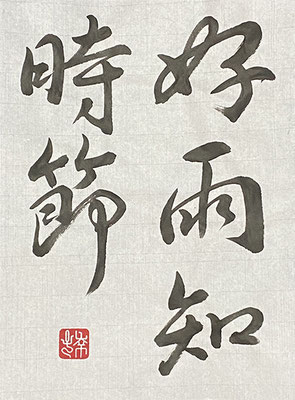 好雨知
時節